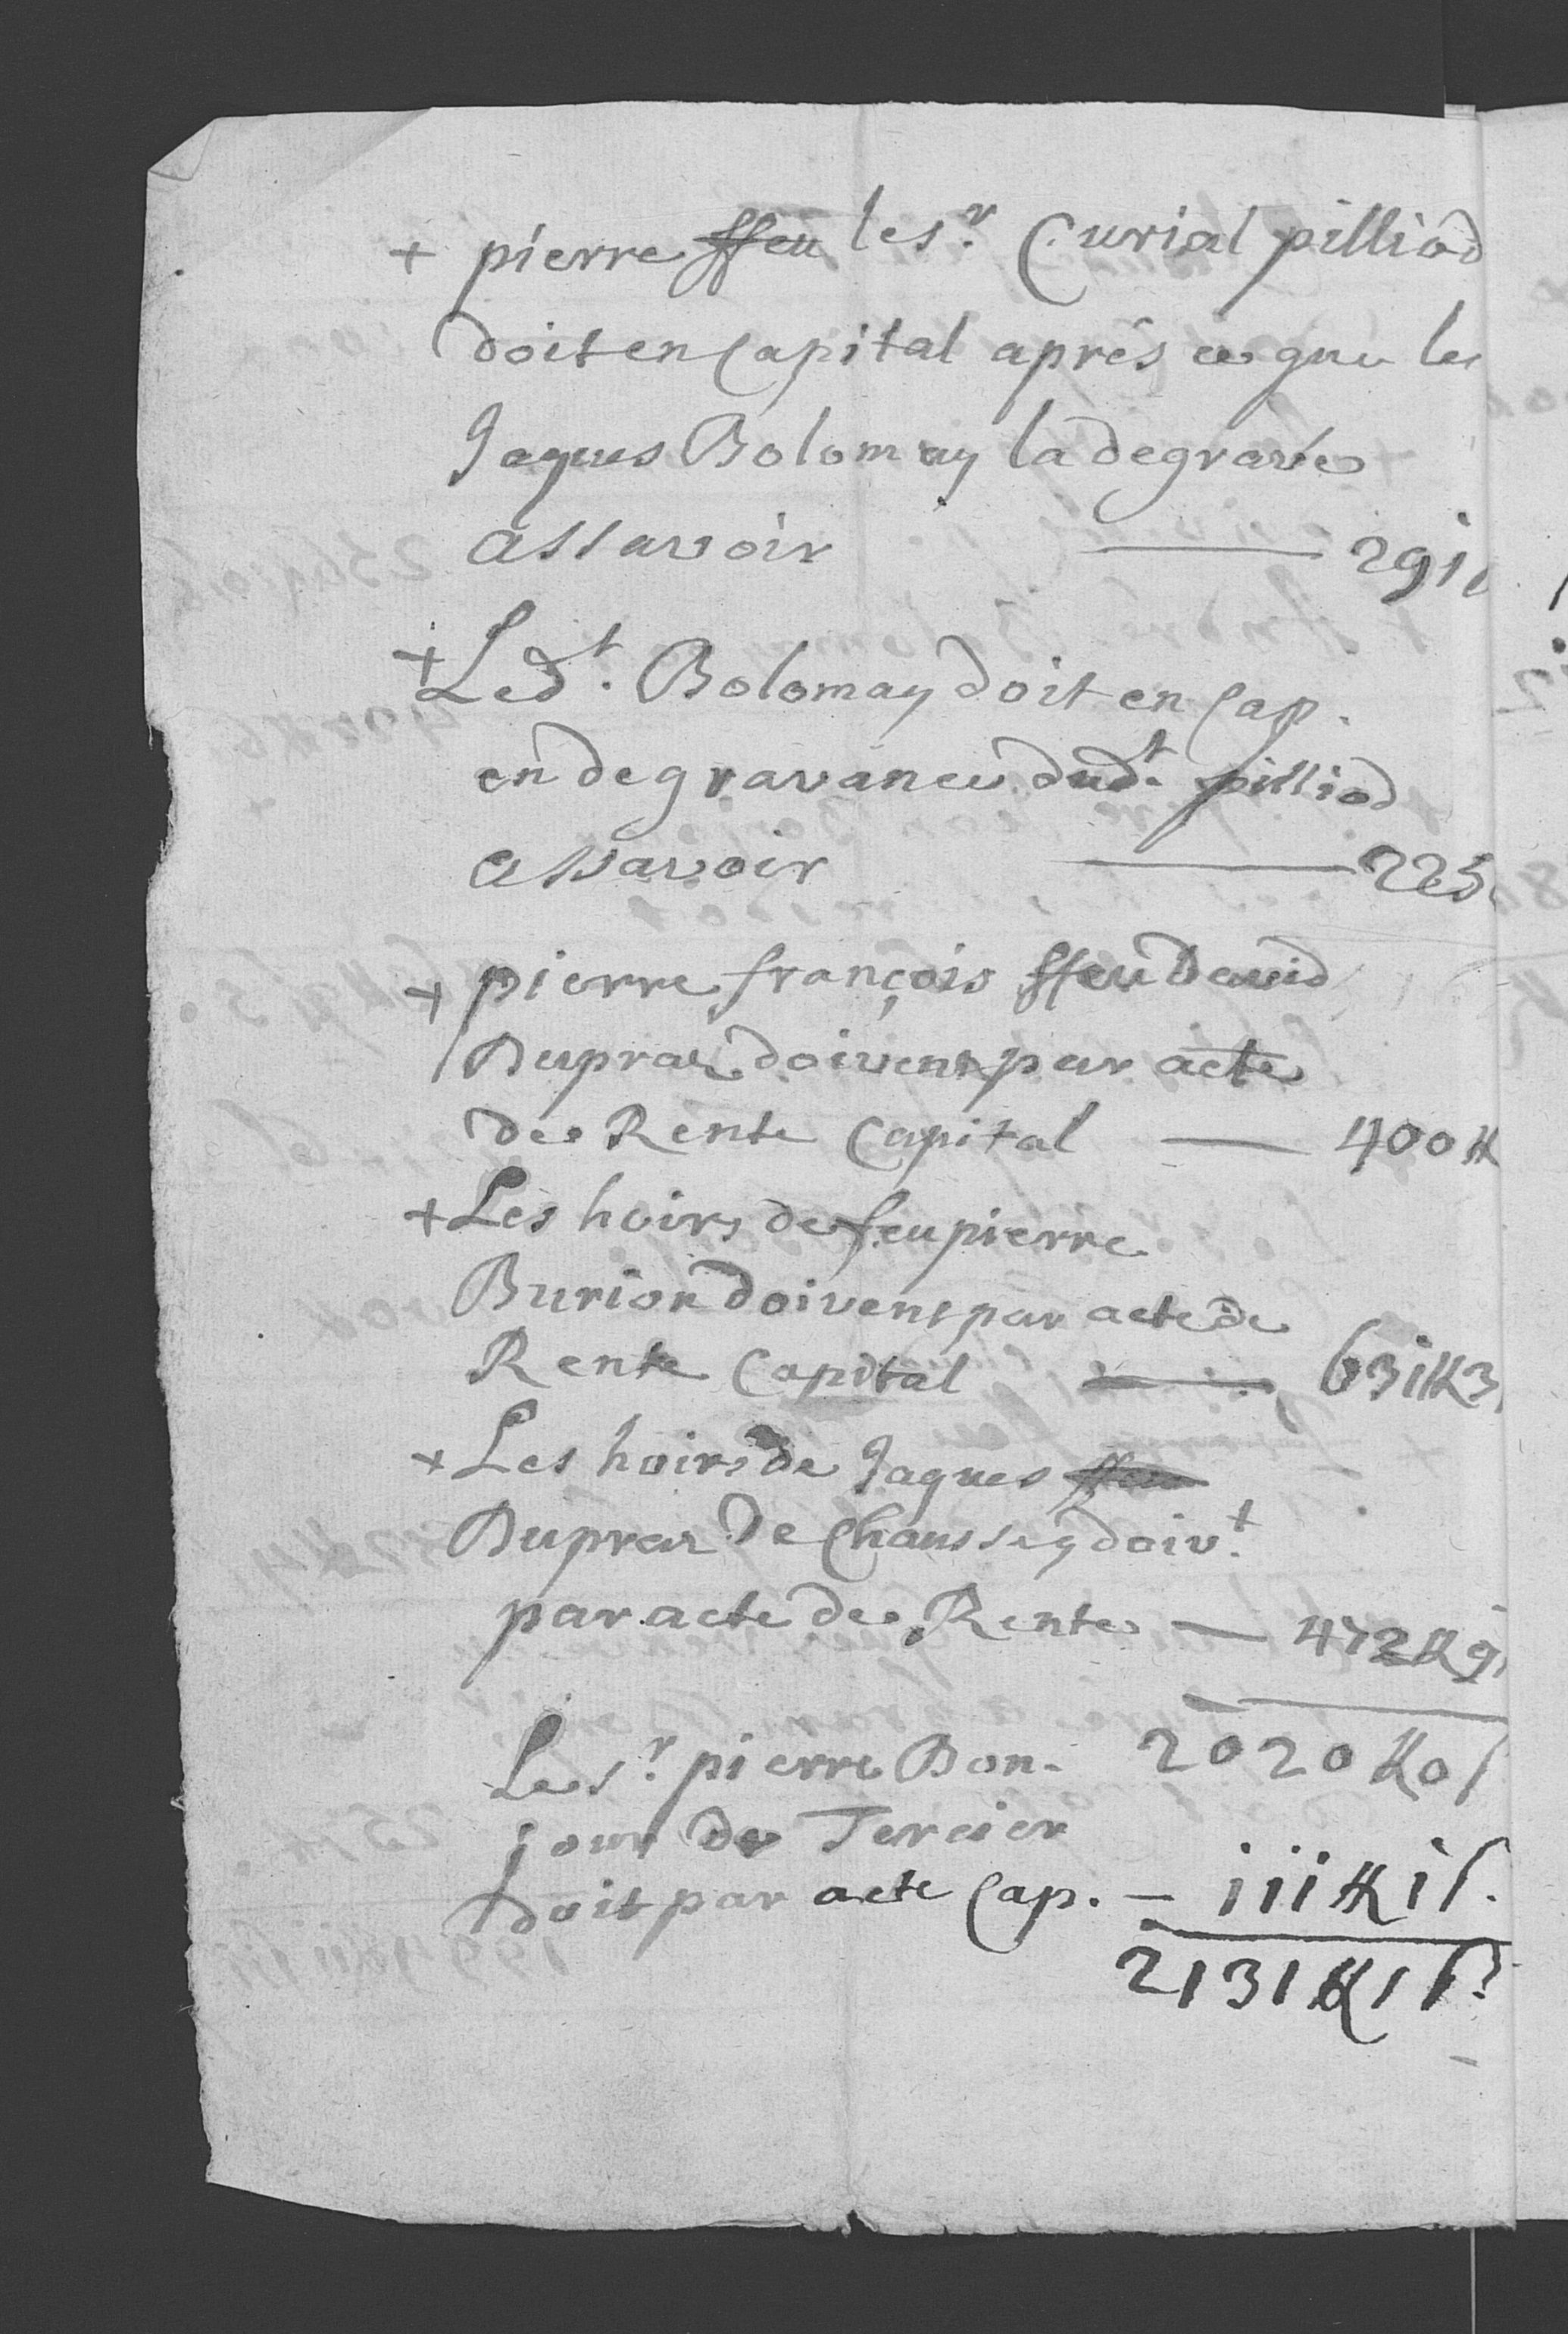 + pierre ffeu le sr. Curial pilliod
doit en Capital aprés ce que le
Jaques Bolomay la degravée
assavoir — 291
+ Ledt. Bolomay doit en Cap.
en degravance dudt. pilliod
assavoir — 225
+ pierre françois ffeu David
Dupraz doivent par acte
de Rente Capital — 400 ℔
+ Les hoirs de feu pierre
Burion doivent par acte de
Rente Capital — 631 ℔ 3
+ Les hoirs de Jaques ffeu
Dupraz de Chaussey doivt.
par acte de Rente — 472 ℔ 9
2020 ℔ 0 ſ
Le sr. pierre Bon-
jour de Tercier
doit par acte Cap. — 111 ℔ 1 ſ.
2131 ℔ 1 ſ.